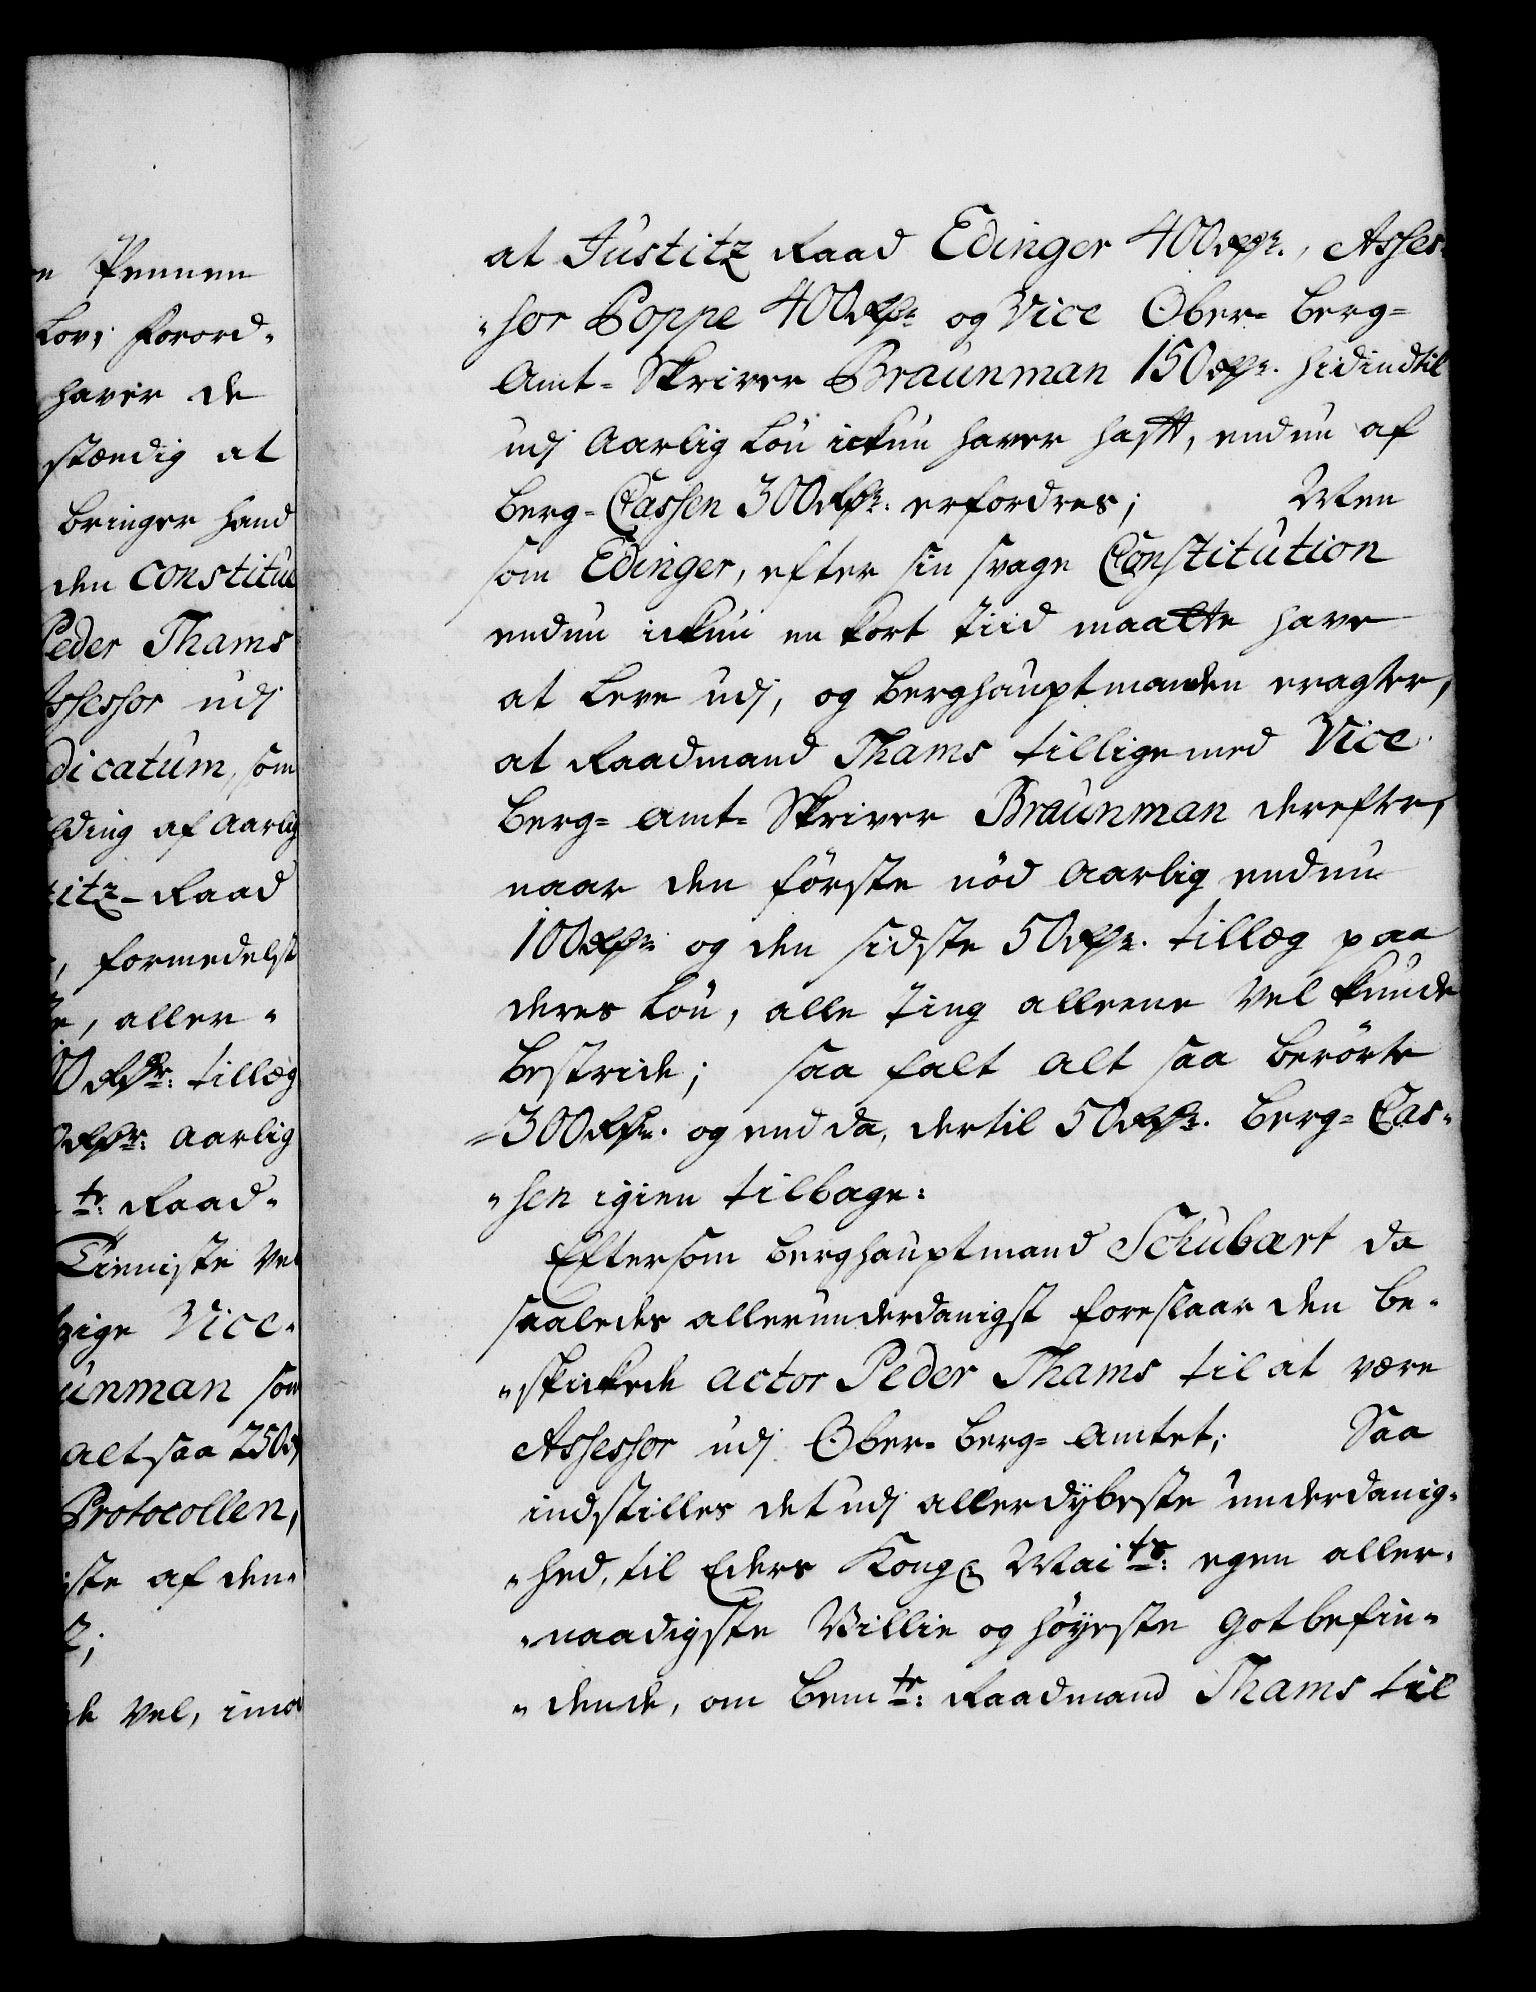 e Pennen
Lov, forord-
haver de
stændig at
bringer hand
den Constitue
Peder Thams
ssessor udj
dicatum, som
lding af Aarlig
titz-Raad
, formedelst
e, aller-
00 Rdr: tillæg
0 Rdr: Aarlig
te: Raad-
Tieniste vel
zige Vice-
unman som
alt saa 250
Protocollen,
iste af den-
de vel, imod
at Justitz Raad Edinger 400 Rdr., Asses-
sor Poppe 400 Rdr. og Vice Ober- Berg-
Amt- Skriver Braunman 150 Rdr. hidindtil
udj Aarlig Løn ickun haver hafft, endnu af
Berg-Cassen 300 Rdr. erfordres; Men
som Edinger, efter sin svage Constitution
endnu ickun en kort tiid maatte have
at Leve udj, og Berghauptmanden eragter,
at Raadmand Thams tillige med Vice
Berg- Amt- Skriver Braunman derefter,
naar den første nød Aarlig endnu
100 Rdr. og den sidste 50 Rdr. tillæg paa
deres Løn, alle ting alleene vel kunde
bestride; saa falt alt saa berørte
300 Rdr. og endda, dertil 50 Rdr. Berg- Cas-
sen igien tilbage:
Eftersom Berghauptmand Schubart da
saaledes allerunderdanigst foreslaar den be-
skickede actor Peder Thams til at være
Assessor udj Ober- Berg- Amtet; Saa
indstilles det udj allerdybeste underdanig-
hed, til Eders Kongl. Maits: egen aller-
naadigste Villie og høyeste Gotbefin-
dende, om bemte: Raadmand Thams til